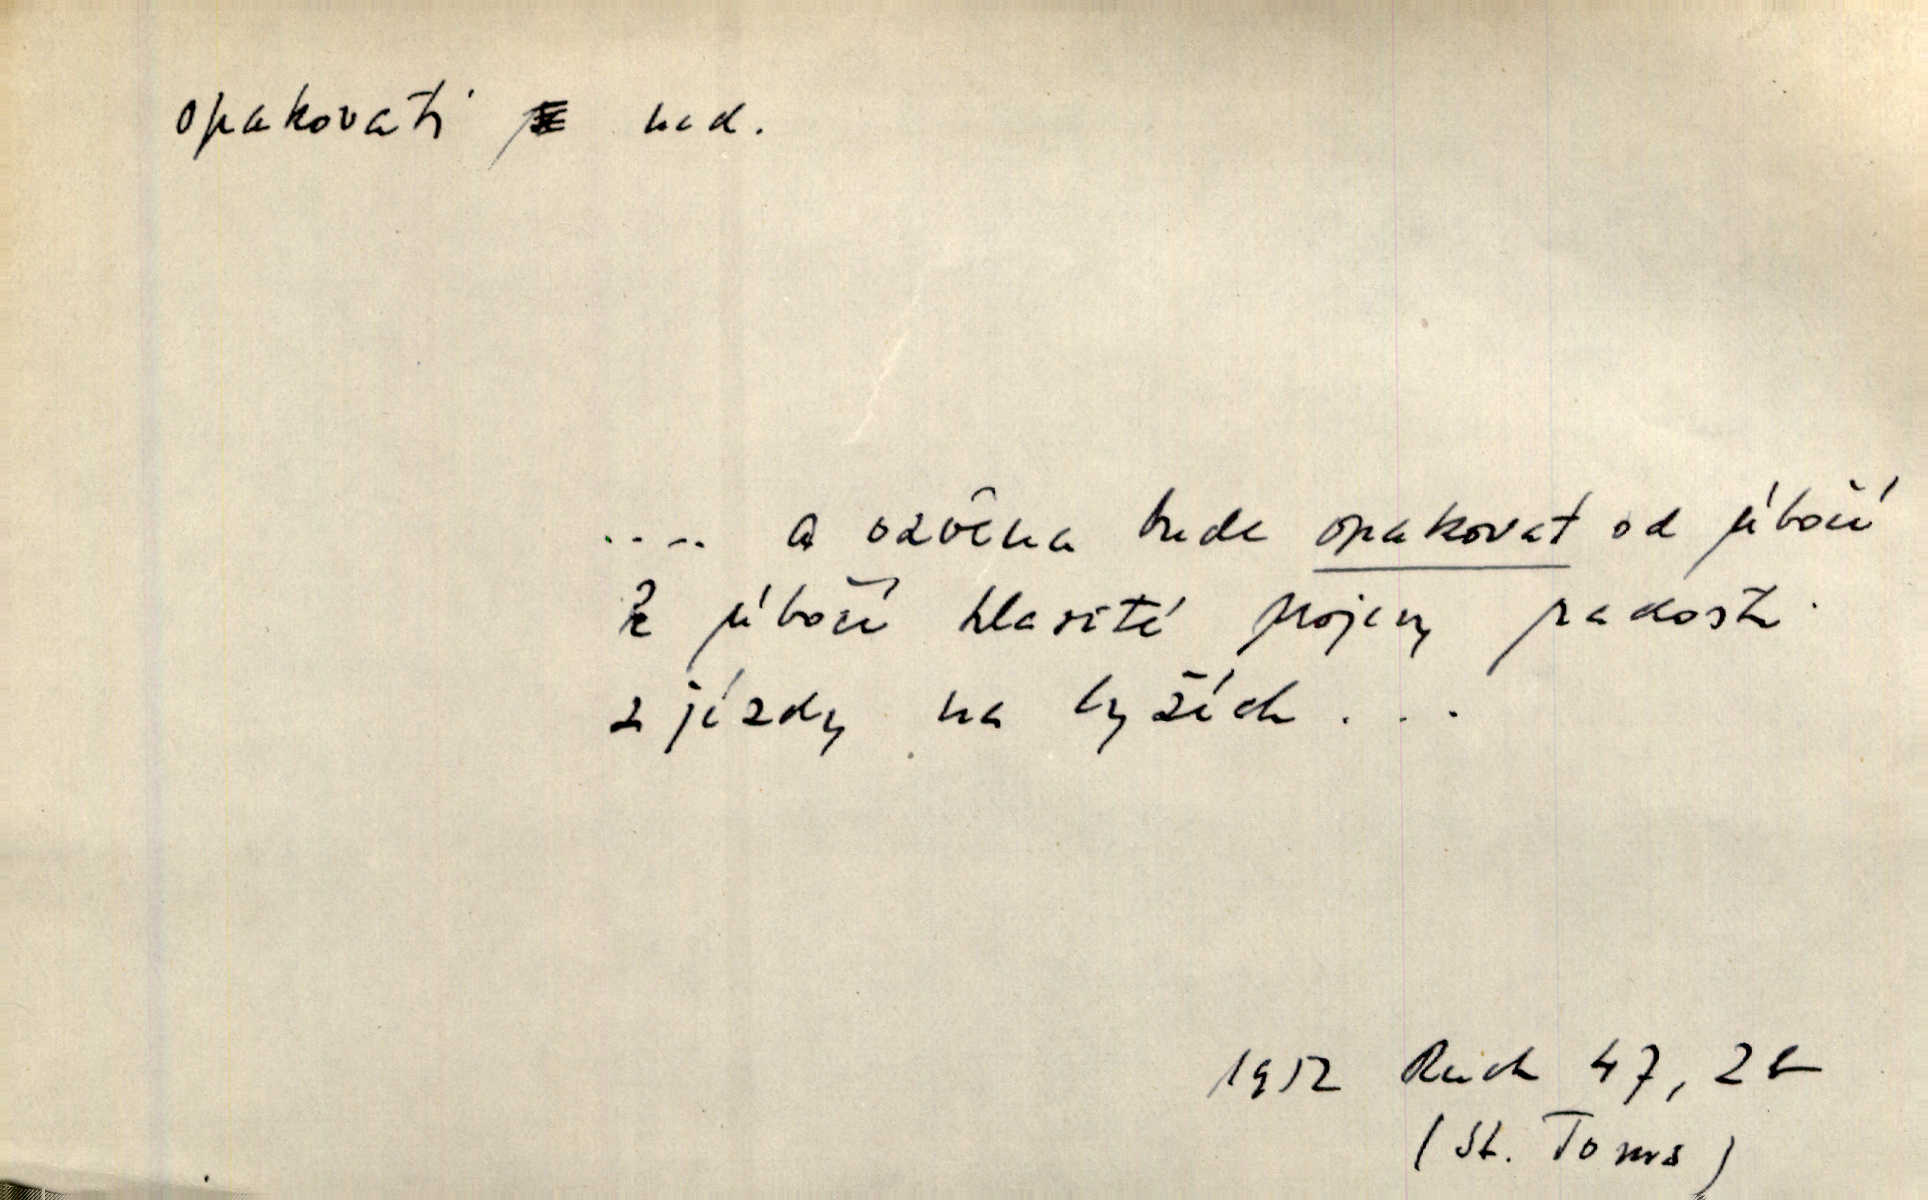 opakovati ned.
.... a ozvěna bude opakovat od úbočí
k úbočí hlasité projevy radosti
z jízdy na lyžích ...
1952 Ruch 47, 2
(St. Toms)